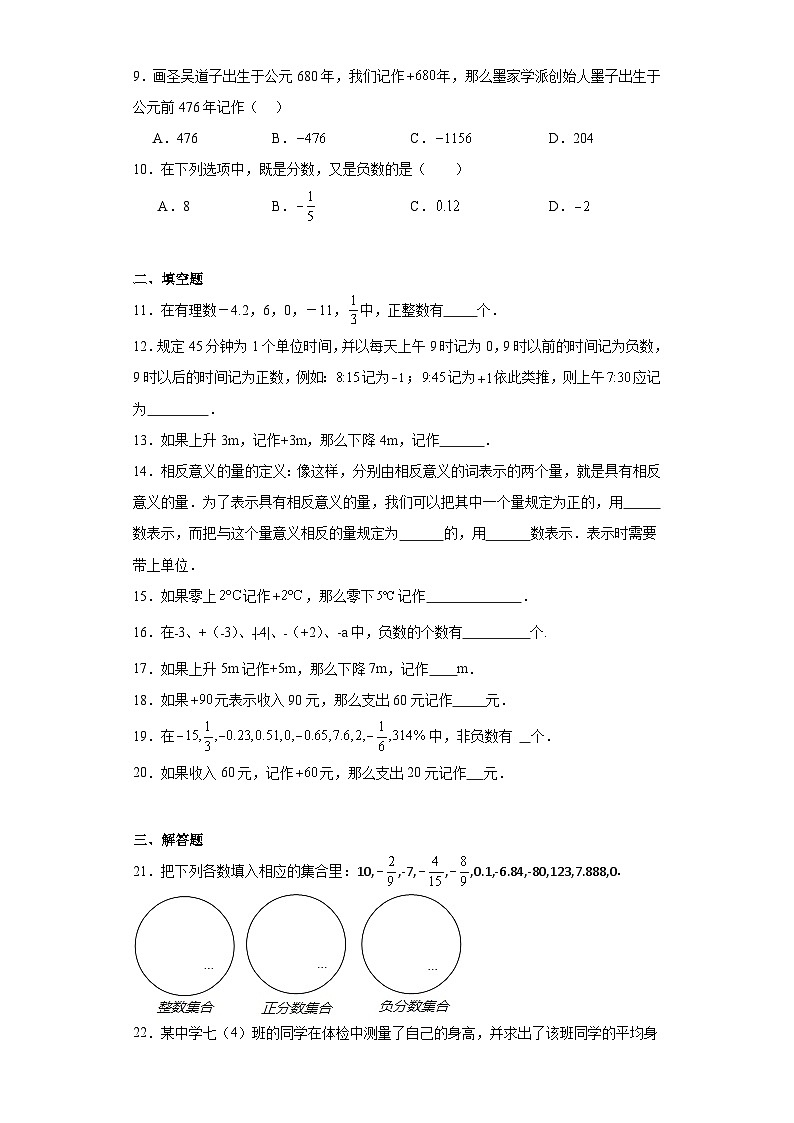 9．画圣吴道子出生于公元 680 年，我们记作 +680 年，那么墨家学派创始人墨子出生于
公元前 476 年记作（　）
A．476 B．−476 C．−1156 D．204
10．在下列选项中，既是分数，又是负数的是（　　）
A．8 B．−1/5 C．0.12 D．−2
二、填空题
11．在有理数－4.2，6，0，－11，1/3 中，正整数有_____个．
12．规定 45 分钟为 1 个单位时间，并以每天上午 9 时记为 0，9 时以前的时间记为负数，
9 时以后的时间记为正数，例如：8:15 记为 −1；9:45 记为 +1 依此类推，则上午 7:30 应记
为_________．
13．如果上升 3m，记作+3m，那么下降 4m，记作______．
14．相反意义的量的定义：像这样，分别由相反意义的词表示的两个量，就是具有相反
意义的量．为了表示具有相反意义的量，我们可以把其中一个量规定为正的，用_____
数表示，而把与这个量意义相反的量规定为______的，用______数表示．表示时需要
带上单位．
15．如果零上 2°C 记作 +2°C，那么零下 5℃ 记作______________．
16．在-3、+（-3）、-|-4|、-（+2）、-a 中，负数的个数有__________个.
17．如果上升 5m 记作+5m，那么下降 7m，记作____m．
18．如果 +90 元表示收入 90 元，那么支出 60 元记作_____元．
19．在 −15, 1/3, −0.23, 0.51, 0, −0.65, 7.6, 2, −1/6, 314% 中，非负数有 __个．
20．如果收入 60 元，记作 +60 元，那么支出 20 元记作__元．
三、解答题
21．把下列各数填入相应的集合里：10, −2/9, -7, −4/15, −8/9, 0.1, -6.84, -80, 123, 7.888, 0.
... ... ...
整数集合 正分数集合 负分数集合
22．某中学七（4）班的同学在体检中测量了自己的身高，并求出了该班同学的平均身